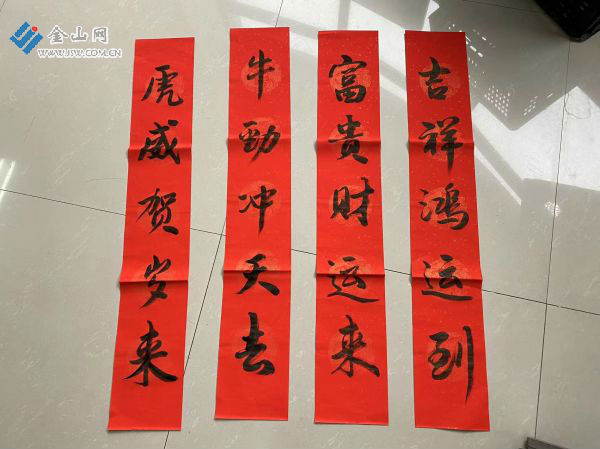 金山网
WWW.JSW.COM.CN
吉祥鸿运到
富贵财运来
牛劲冲天去
虎威贺岁来